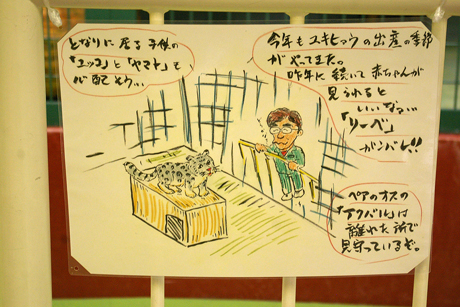 となりに居る子供の
「ユッコ」と「ヤマト」も
心配そう…
今年もユキヒョウの出産の季節
がやってきた。
昨年に続いて赤ちゃんが
見られると
いいなぁ…
「リーベ」
ガンバレ!!
ペアのオスの
「アクバル」は
離れた所で
見守っているぞ。